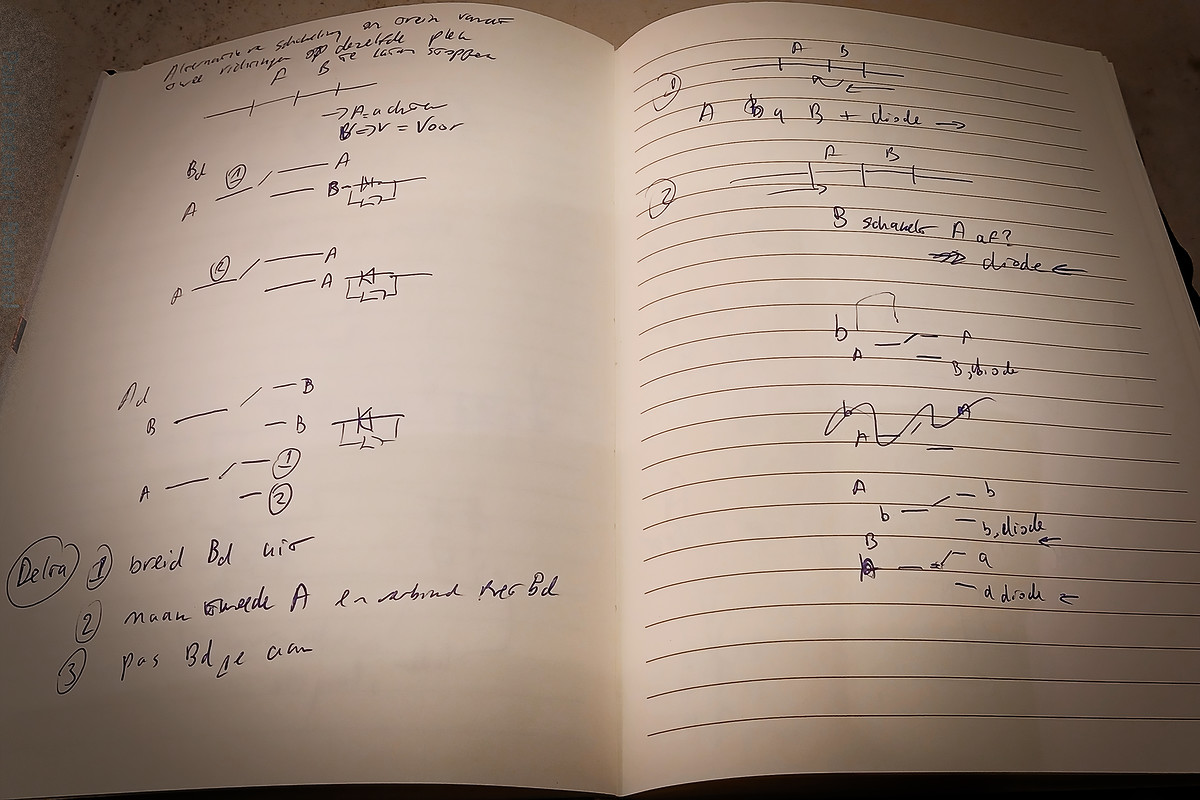 Alternatieve schakeling om trein vanuit
twee richtingen op dezelfde plek
te laten stoppen
A B
→ A = achter
B => V = Voor
Bd
1 A
A B
2 A
A A
Ad
B B
B
A 1
2
Delta 1 breid Bd uit
2 maak tweede A en verbind met Bd
3 pas Bd, 1e aan
1 A B
A bij B + diode →
2 A B
B schakelt A af?
diode ←
b
A A
B, diode
b A
A
A
b b
b, diode ←
B
a
a diode ←